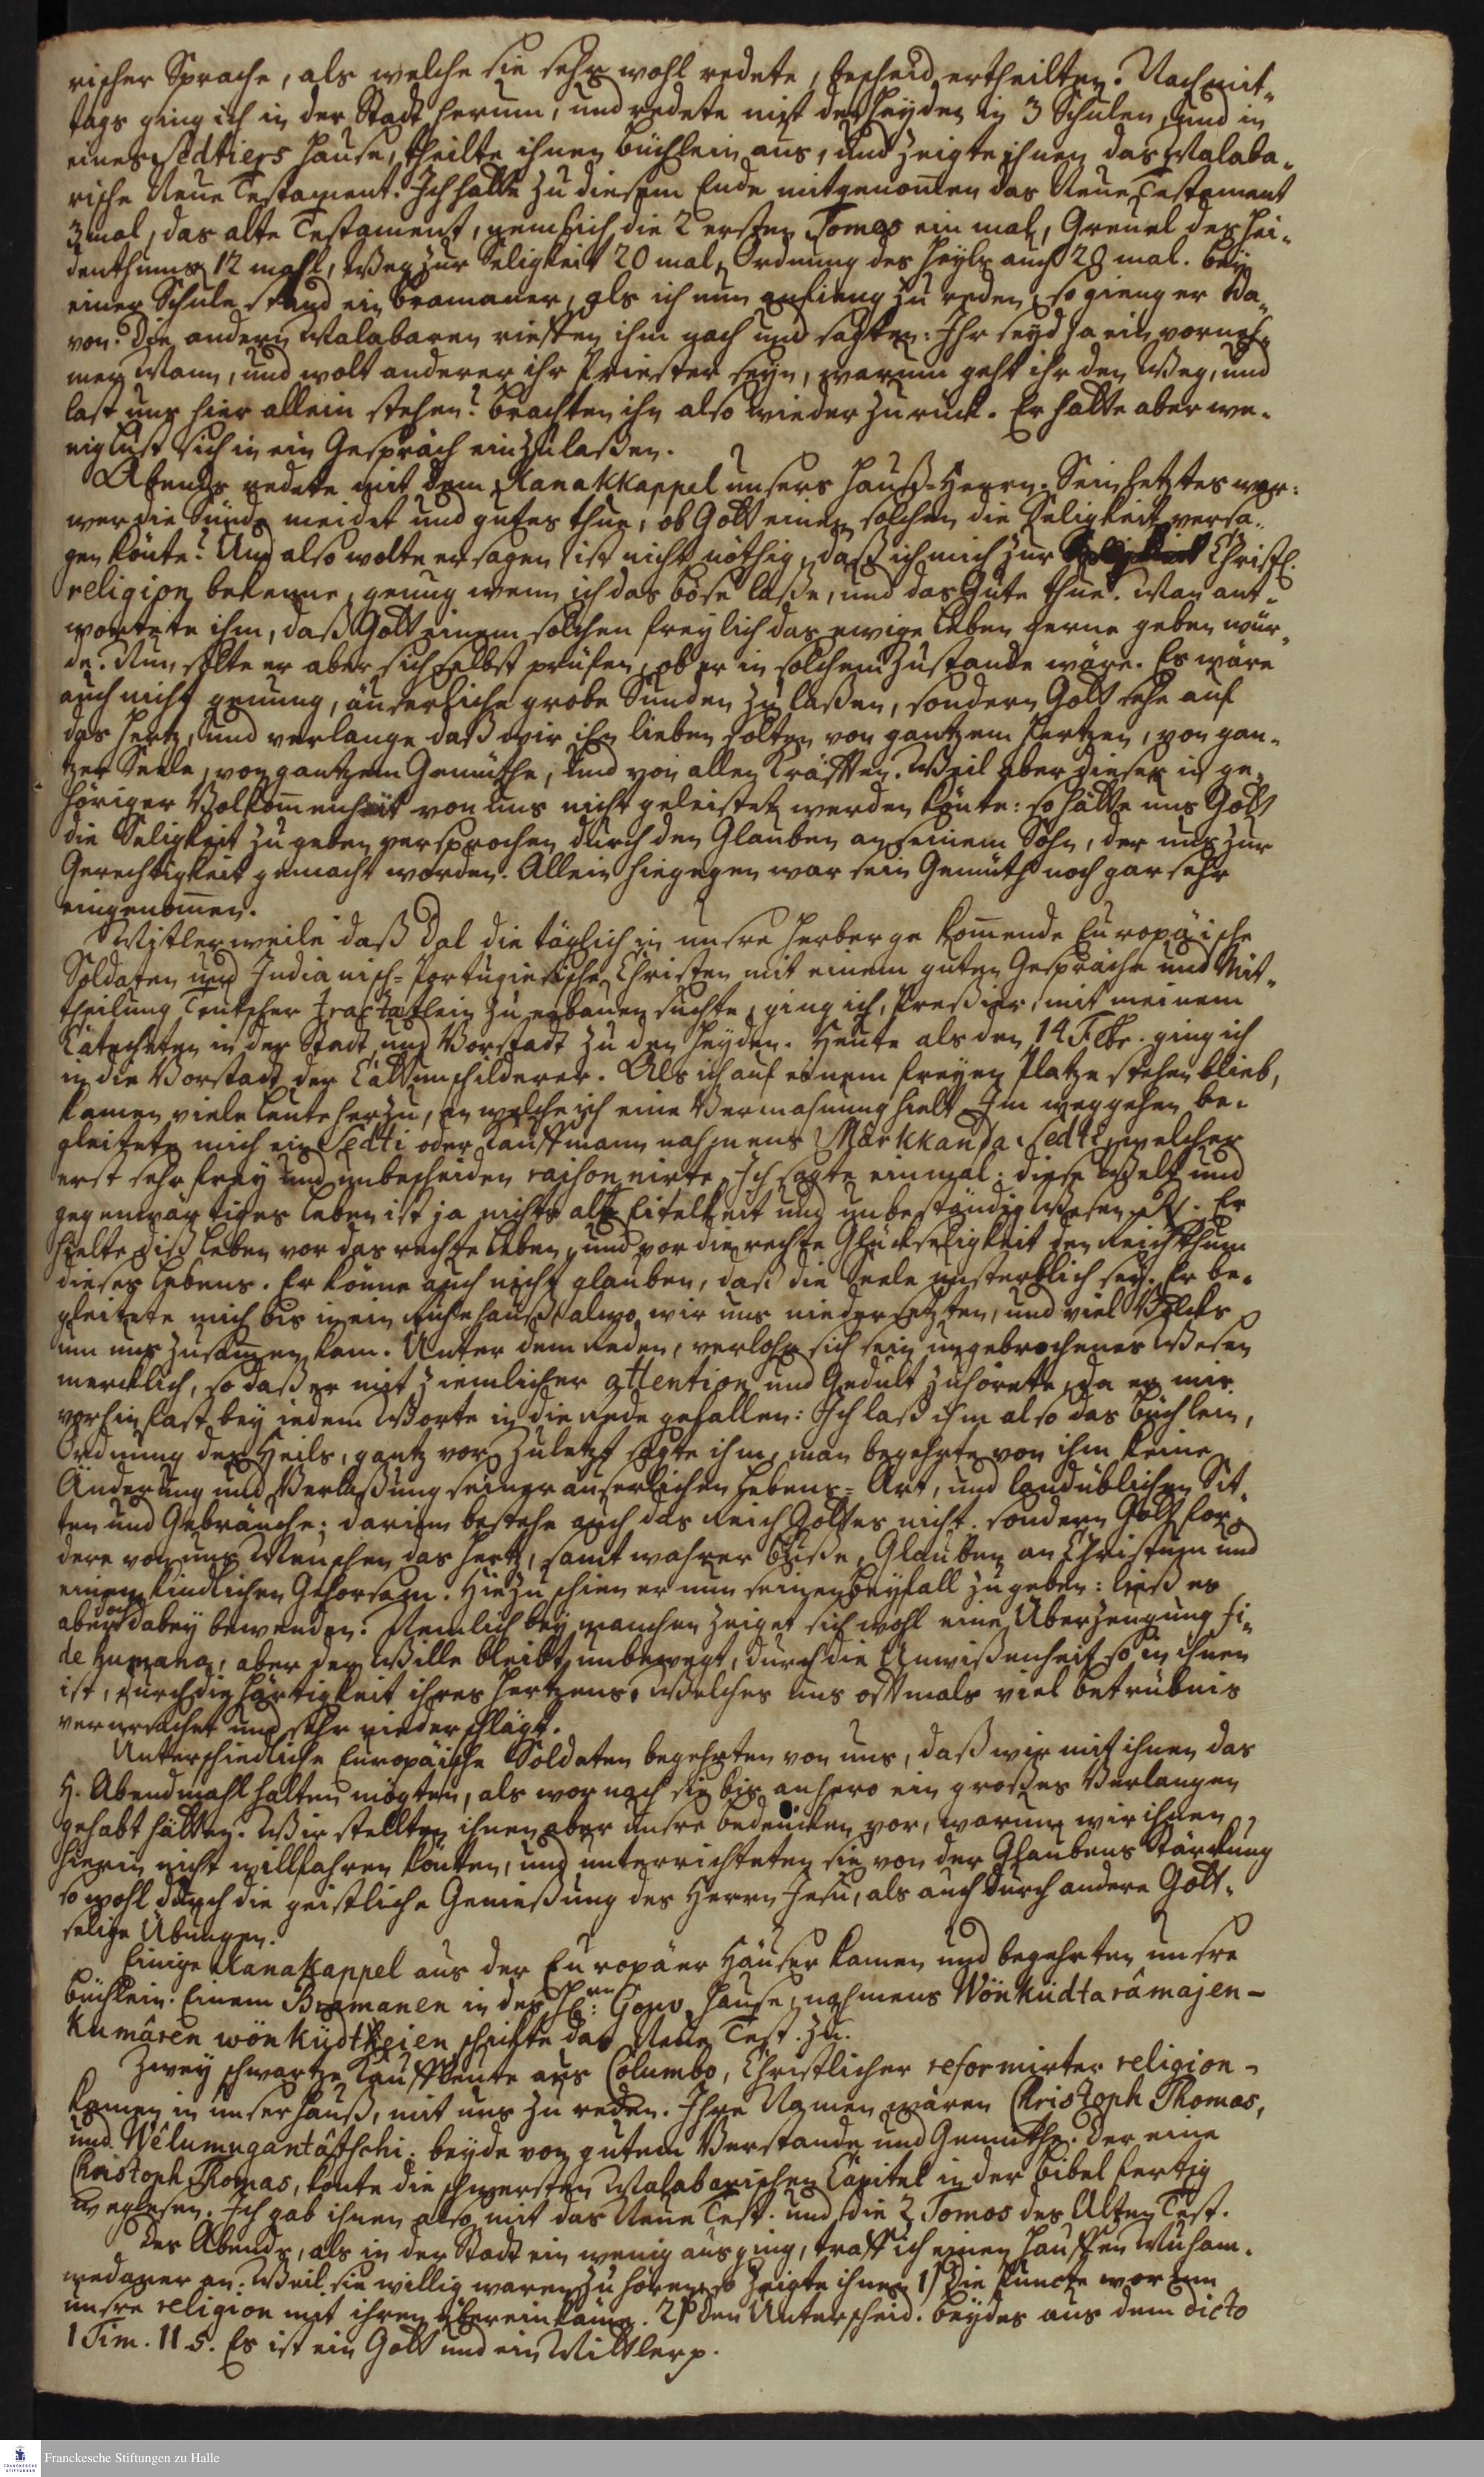 rischer Sprache, als welche sie sehr wohl redete, bescheid ertheilten. Nachmit-
tags ging ich in der Stadt herum, und redete mit der Heyden in 3 Schulen, und in
eines Sedtiers Hause, theilte ihnen büchlein aus, und zeigte ihnen das Malaba-
rische Neue Testament. Ich hatte zu diesem Ende mitgenom̅en das Neue Testament
3 mal, das alte Testament, nemlich die 2 ersten Tomos ein mal, Greuel des Hei-
denthums 12 mahl, Weg zur Seligkeit 20 mal, Ordnung des Heyls auch 20 mal. Bey
einer Schule stand ein Bramaner, als ich nun anfieng zu reden, so gieng er da-
von. Die andern Malabaren riefen ihm nach und sagten: Ihr seyd ja ein vorneh-
mer Mann, und wolt anderer ihr Priester seyn, warum geht ihr den Weg, und
last uns hier allein stehen? brachten ihn also wieder zurück. Er hatte aber we-
nig Lust sich in ein Gespräch einzulaßen.
Abends redete mit dem Kanakkappel unsers Hauß-Herrn. Sein letztes war:
wer die Sünde meidet und gutes thue, ob Gott einem solchen die Seligkeit versa-
gen könte? Und also wolte er sagen ist nicht nöthig, daß ich mich zur Christl.
religion bekenne, genug wenn ich das böse laße, und das Gute thue. Man ant-
wortete ihm, daß Gott einem solchen freylich das ewige Leben gerne geben wür-
de. Nun solte er aber sich selbst prüfen, ob er in solchem Zustande wäre. Es wäre
auch nicht genung, äuserliche grobe Sünden zu laßen, sondern Gott sehe auf
das Hertz, und verlange daß wir ihn lieben solten von gantzem Hertzen, von gan-
tzer Seele, von gantzem Gemüthe, und von allen Kräfften. Weil aber dieses in ge-
höriger Volkom̅enheit von uns nicht geleistet werden könte: so hätte uns Gott
die Seligkeit zu geben versprochen durch den Glauben an seinem Sohn, der uns zur
Gerechtigkeit gemacht worden. Allein hiegegen war sein Gemüth noch gar sehr
eingenom̅en.
Mitlerweile daß Dal die täglich in unsre Herberge kom̅ende Europäische
Soldaten und Indianisch-Portugiesische Christen mit einem guten Gespräche und Mit-
theilung Teutscher Tractätlein zu erbauen suchte, ging ich, Preßier, mit meinem
Catecheten in der Stadt und Vorstadt zu den Heyden. Heute als den 14 Febr. ging ich
in die Vorstadt der Cattunschilderer. Als ich auf einem freyen Platze stehen blieb,
kamen viele Leute herzu, an welche ich eine Vermahnung hielt. Im weggehen be-
gleitete mich ein Sedti oder Kauffmann nahmens Märkkanda Sedti, welcher
erst sehr frey und unbescheiden raisonnirte. Ich sagte einmal: diese Welt und
gegenwärtiges Leben ist ja nichts als Eitelkeit und unbeständig Wesen. Er
hielte diß Leben vor das rechte Leben, und vor die rechte Glückseligkeit den Reichthum
dieses Lebens. Er könne auch nicht glauben, daß die Seele unsterblich sey. Er be-
gleitete mich bis in ein Ruhehauß, alwo wir uns niedersetzten, und viel Volcks
um uns zusam̅en kam. Unter dem Reden, verlohr sich sein ungebrochenes Wesen
mercklich, so daß er mit ziemlicher attention und Gedult zuhörete, da er mir
vorhin fast bey iedem Worte in die Rede gefallen: Ich laß ihm also das büchlein,
Ordnung des Heils, gantz vor. Zuletzt sagte ihm, man begehrte von ihm keine
Änderung und Verlaßung seiner äuserlichen Lebens-Art, und landüblichen Sit-
ten und Gebräuche; darinn bestehe auch das Reich Gottes nicht. sondern Gott for-
dere von uns Menschen das Hertz, samt wahrer Buße, Glauben an Christum und
einen kindlichen Gehorsam. Hiezu schien er nun seinen Beyfall zu geben: ließ es
aber doch dabey bewenden. Nemlich bey manchen zeiget sich wohl eine Überzeugung fi-
de humana, aber der Wille bleibt unbewegt, durch die Unwißenheit so in ihnen
ist, durch die Härtigkeit ihres Hertzens. Welches uns offtmals viel betrübnis
verursachet und sehr niederschlägt.
Unterschiedliche Europäische Soldaten begehrten von uns, daß wir mit ihnen das
H. Abendmahl halten mögten, als wornach sie bis anhero ein großes Verlangen
gehabt hätten. Wir stellten ihnen aber unsre bedencken vor, warum wir ihnen
hierin nicht willfahren könten, und unterrichteten sie von der Glaubens Stärckung
so wohl durch die geistliche Genießung des Herrn Jesu, als auch durch andere Gott-
selige Übungen.
Einige Kanakappel aus der Europäer Häuser kamen und begehrten unsre
büchlein. Einem Bramanen in des H: Gouv. Hause, nahmens Wönküdtarâmajen-
kumâren wönküdtteien schickte das Neue Test. zu.
Zwey schwartze Kauffleute aus Columbo, Christlicher reformirter religion
kamen in unser Hauß, mit uns zu reden. Ihre Namen waren Christoph Thomas,
und Wêlumugantâtschi. beyde von gutem Verstande und Gemüthe. Der eine
Christoph Thomas, konte die schwersten Malabarischen Capitel in der Bibel fertig
weglesen. Ich gab ihnen also mit das Neue Test. und die 2 Tomos des Alten Test.
Des Abends, als in der Stadt ein wenig ausging, traff ich einen Hauffen Muham-
medaner an. Weil sie willig waren zu hören, so zeigte ihnen 1) die Puncte worinn
unsre religion mit ihren übereinkäme. 2) den Unterscheid. beydes aus dem dicto
1 Tim. II. 5. Es ist ein Gott und ein Mittler p.
Franckesche Stiftungen zu Halle